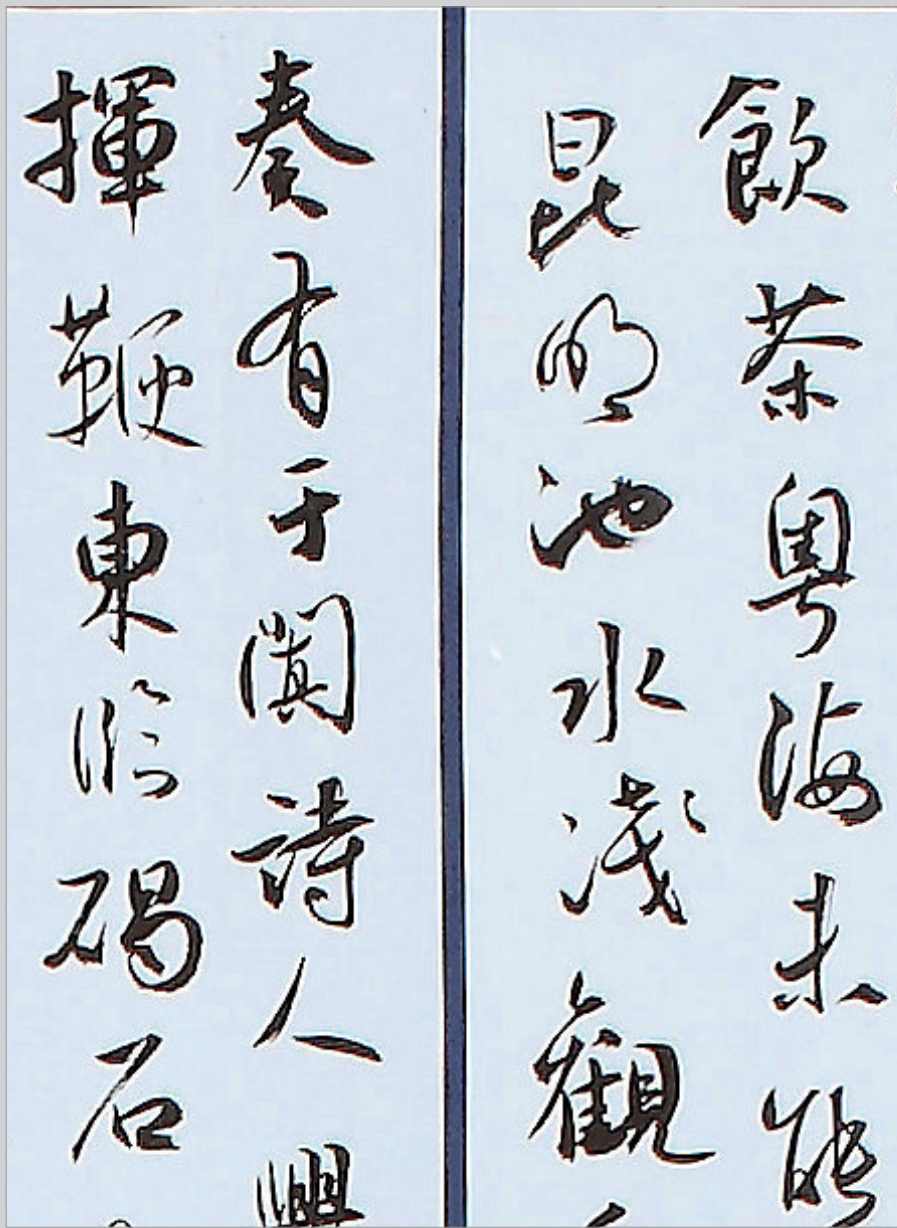 飲茶粤海未能
昆明池水淺觀
奏有于闐詩人興
揮鞭東臨碣石